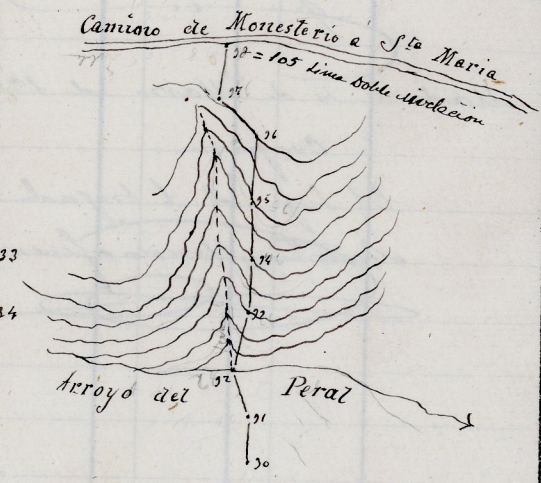 Camino de Monesterio á Sta Maria
98 = 105 Linea Doble nivelacion
97
96
95
94
33
34
92
92
Arroyo del Peral
91
90